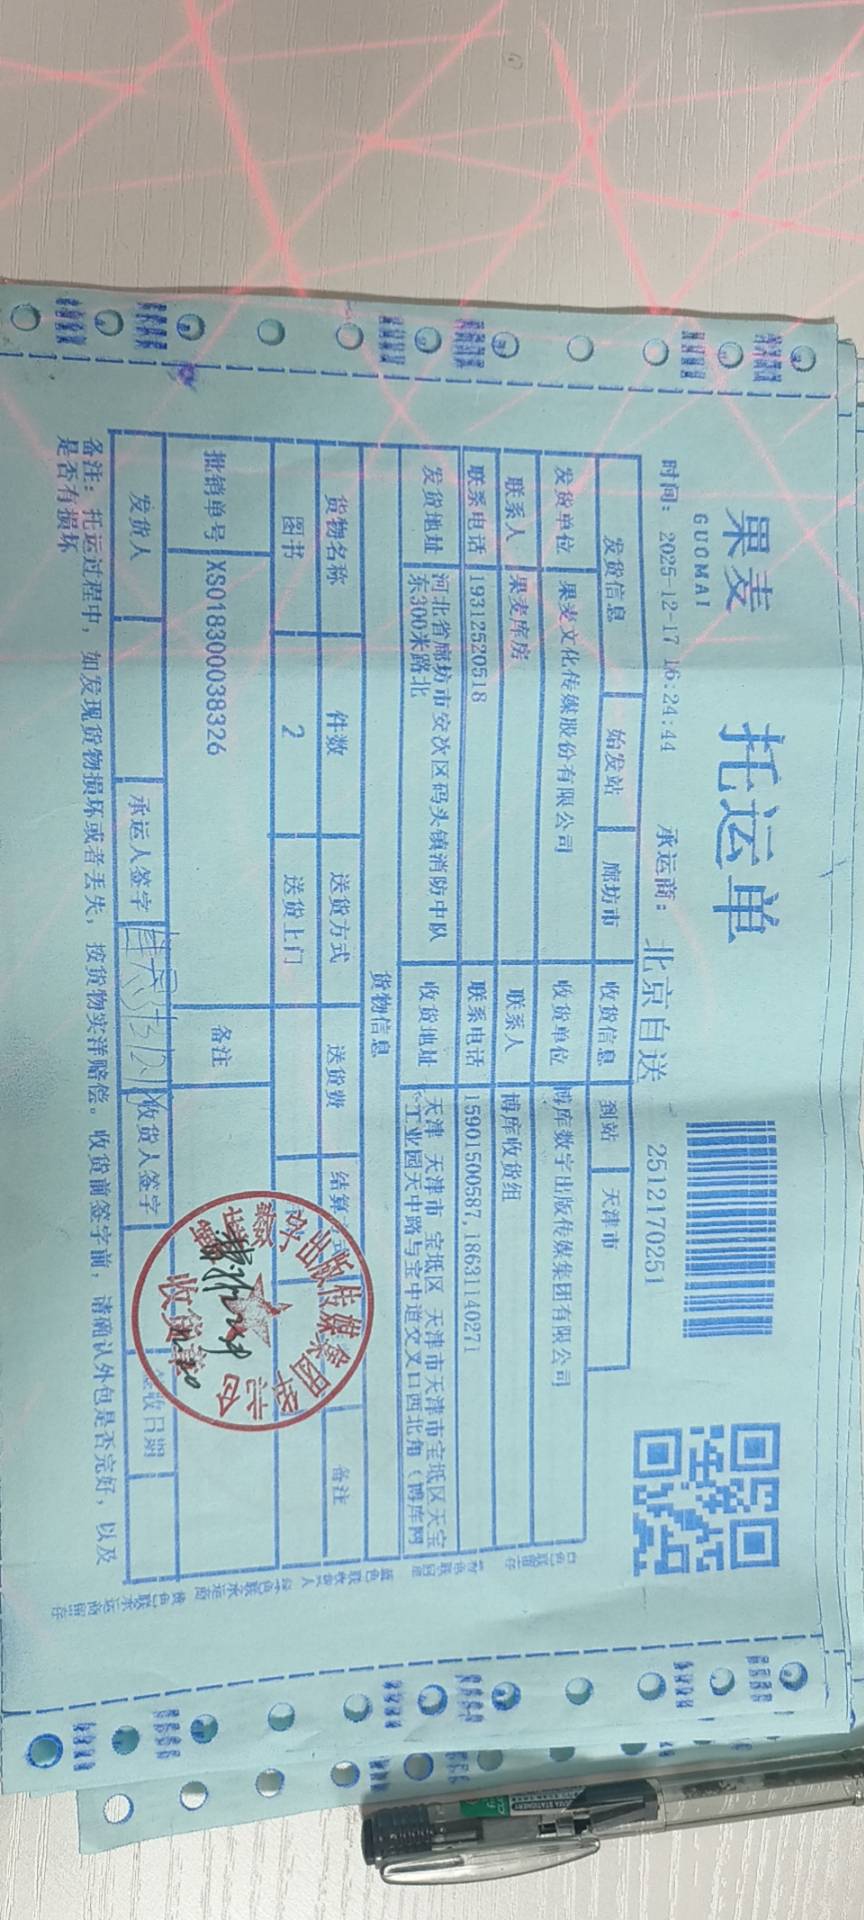 果麦
GUOMAI
托运单
时间: 2025-12-17 16:24:44 承运商: 北京自送 2512170251
发货信息 始发站 廊坊市 收货信息 到站 天津市
发货单位 果麦文化传媒股份有限公司 收货单位 博库数字出版传媒集团有限公司
联系人 果麦库房 联系人 博库收货组
联系电话 19312520518 联系电话 15901500587,18631140271
发货地址 河北省廊坊市安次区码头镇消防中队 收货地址 天津 天津市 宝坻区 天津市天津市宝坻区天宝
东300米路北 工业园天中路与宝中道交叉口西北角(博库网
货物信息
货物名称 件数 送货方式 送货费 结算 备注
图书 2 送货上门
批销单号 XS018300038326 备注
发货人 承运人签字 收货人签字 签收日期
备注: 托运过程中, 如发现货物损坏或者丢失, 按货物实洋赔偿。收货前签字前, 请确认外包是否完好, 以及
是否有损坏
数字出版传媒集团
收货章